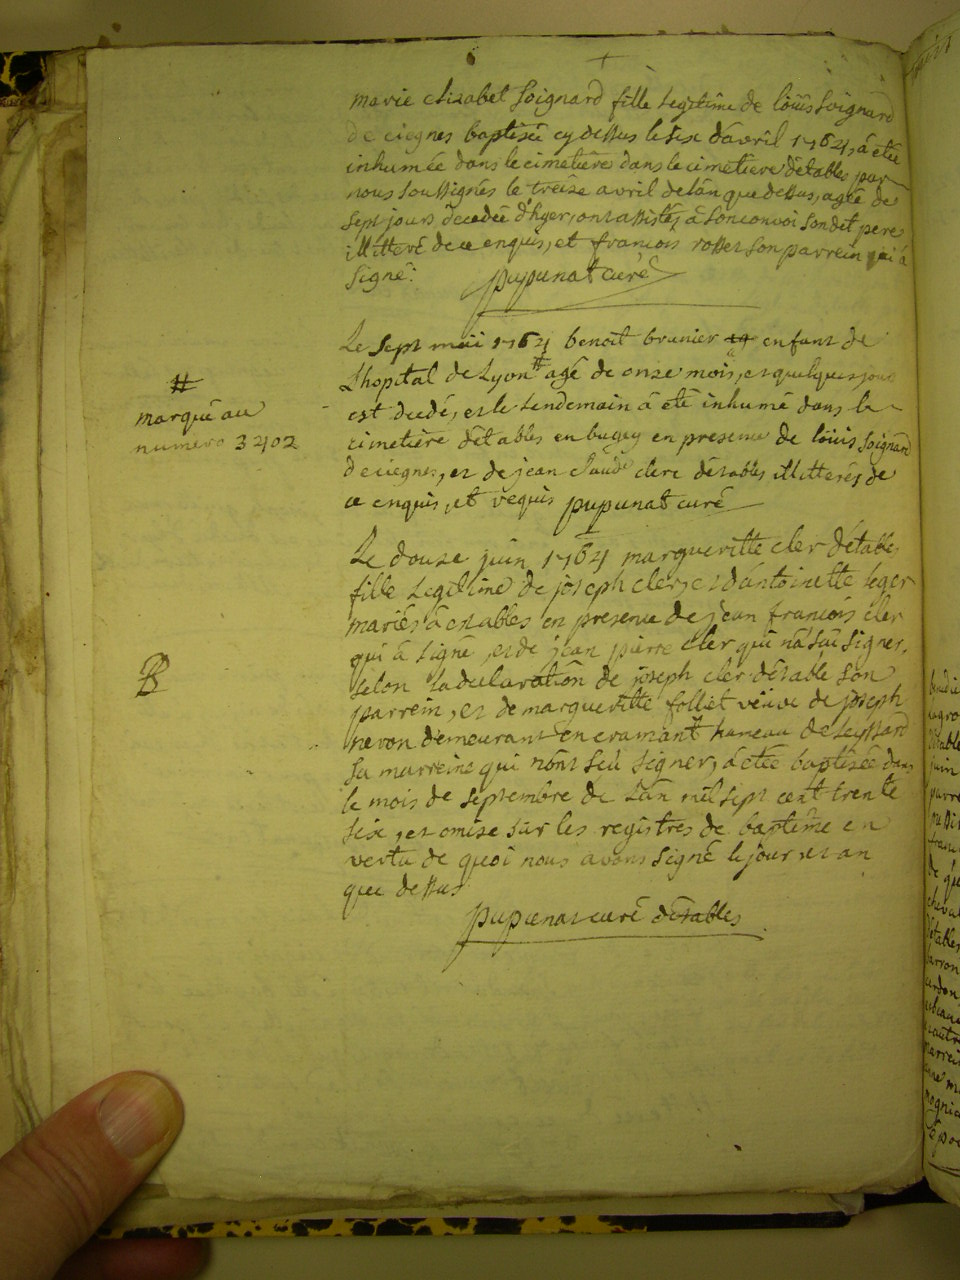 marie elisabet Soignard fille legitime de loüis Soignard
de ciegnes baptisée cy dessus le six d'avril 1764, á étée
inhumée dans le cimetière dans le cimetière d'étables par
nous soussignés le treize avril de l'an que dessus, agée de
sept jours décedée d'hyer, ont assistés á son convoi son dit pere
illitteré de ce enquis, et francois rosset son parrein qui á
signé.
pupunat curé
Le sept mai 1764 benoit brunier enfant de
L'hopital de Lyon # agé de onze mois, et quelques jours
est decedé, et le lendemain á été inhumé dans le
cimetière d'étables en bugey en presence de loüis Soignard
de ciegnes, et de jean Claude clerc d'étables illitterés de
ce enquis, et requis pupunat curé
#
marqué au
numero 3402
Le douze juin 1764 margueritte cler d'étables
fille Legitime de joseph cler, et d'antoinette leger
mariés á estables en presence de jean francois cler
qui á signé, et de jean pierre cler qui n'á sçû signer,
selon la declaration de joseph cler d'étable son
parrein, et de margueritte folliet veüve de joseph
nevon demeurant en cramant hameau de Leyssard
sa marreine qui n'ont sçû signer, á étée baptisée dans
le mois de septembre de l'an mil sept cent trente
six, et omise sur les registres de baptême en
vertu de quoi nous avons signé le jour, et an
que dessus
pupunat curé d'étables
B